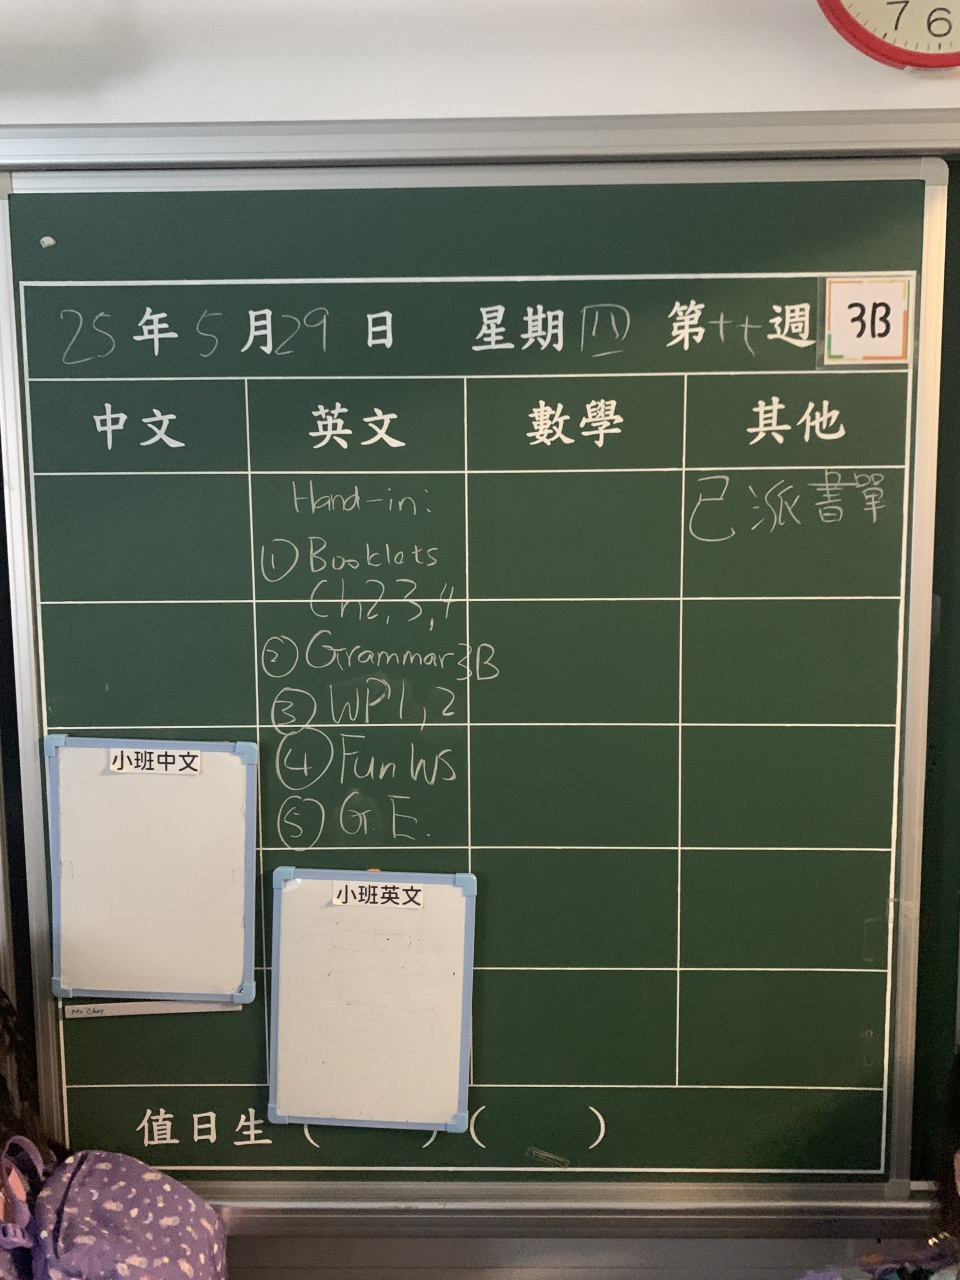 7 6
25年5月29日 星期四 第十七週 3B
中文 英文 數學 其他
Hand-in:
① Booklets
Ch2,3,4
② Grammar 3B
③ WP1,2
④ Fun WS
⑤ G.E.
已派書單
小班中文
小班英文
值日生 ( ) ( )